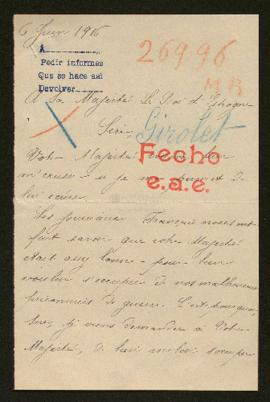 6 Juin 1916
26996
A
Pedir informes
Que se hace así
Devolver
MB
A Sa Majesté Le Roi d'Espagne
Sire
Girolet
Votre Majesté
m'excuser si je me permet de
lui écrire
Fecho
e.a.e.
Les journaux Français nous ont
fait savoir que votre Majesté
était assez bonne pour bien
vouloir s'occuper de nos malheureux
prisonniers de guerre. C'est pourquoi,
Sire, je viens demander à Votre
Majesté, de bien vouloir s'occuper